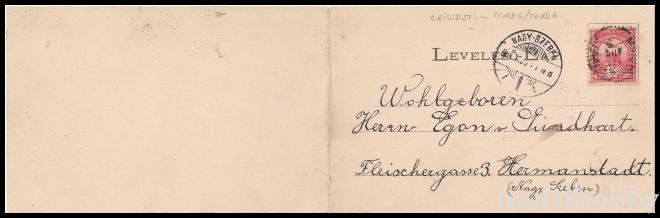 CRISTESTI - MURES/TURDA
NAGY-SZEBEN
LEVELEZŐ-LAP
Wohlgeboren
Herrn Egon v. Gundhart.
Fleischergasse 3. Hermanstadt.
(Nagy Szeben)